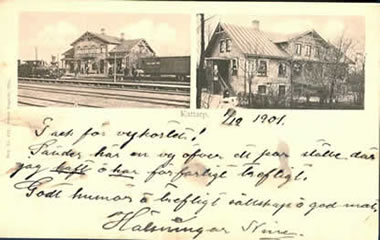 Kattarp.
7/9 1901.
Tack för vykortet!
Sänder här en vy öfver ett par ställe där
jag haft o har förfärligt trefligt.
Godt humör o trefligt sällskap o god mat.
Hälsningar